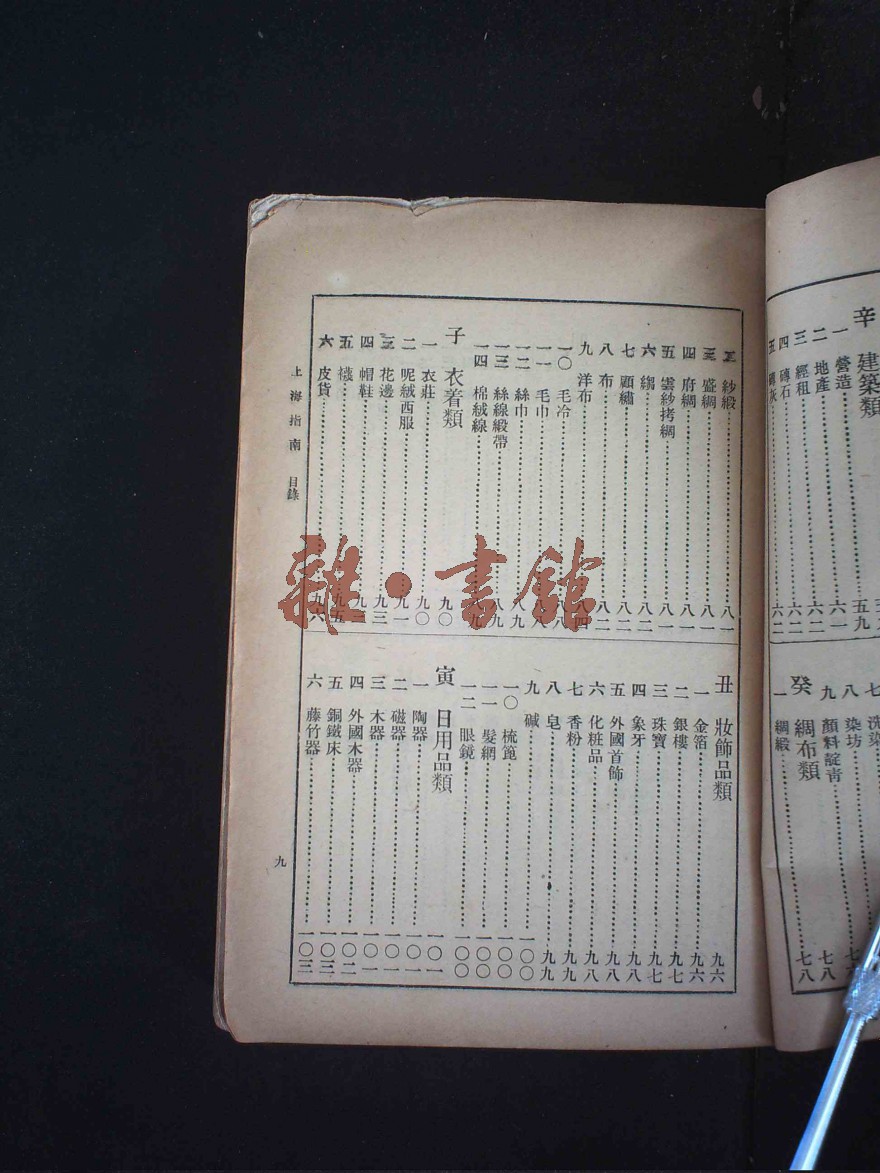 辛 建築類 五九
一 營造……六一
二 地產……六二
三 經租……六二
四 磚石……六二
五
七 洗染
八 染坊……
九 顏料靛青……七八
癸 綢布類 七八
一 綢緞……
二 紗緞……八一
三 盛綢……八一
四 府綢……八一
五 雲紗拷綢……八一
六 縐……八二
七 顧繡……八二
八 布……八二
九 洋布……八四
一〇 毛冷……八八
一一 毛巾……八八
一二 絲巾……八九
一三 絲線緞帶……八九
一四 棉絨線……八九
子 衣着類……九〇
一 衣莊……九〇
二 呢絨西服……九一
三 花邊……九三
四 帽鞋……九三
五 襪……九五
六 皮貨……九六
丑 妝飾品類……九六
一 金箔……九六
二 銀樓……九七
三 珠寶……九七
四 象牙……九八
五 外國首飾……九八
六 化粧品……九八
七 香粉……九九
八 皂……九九
九 碱……一〇〇
一〇 梳篦……一〇〇
一一 髮網……一〇〇
一二 眼鏡……一〇〇
寅 日用品類……一〇一
一 陶器……一〇一
二 磁器……一〇一
三 木器……一〇一
四 外國木器……一〇二
五 銅鐵床……一〇三
六 藤竹器……一〇三
上海指南 目錄
九
雜·書館